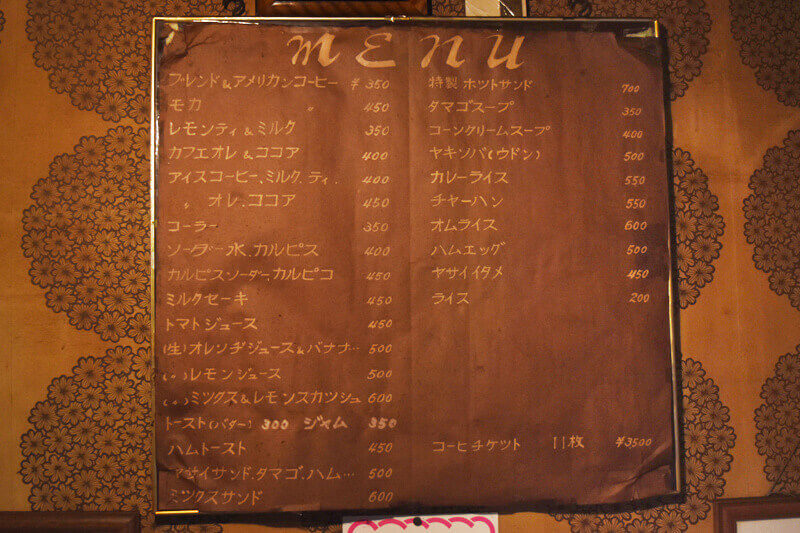 MENU
ブレンド&アメリカンコーヒー ¥350
モカ 〃 450
レモンティ&ミルク 350
カフエオレ&ココア 400
アイスコーヒー、ミルク、ティ. 400
〃 オレ、ココア 450
コーラー 350
ソーダー水、カルピス 400
カルピスソーダー、カルピコ 450
ミルクセーキ 450
トマトジュース 450
(生)オレンヂジュース&バナナ… 500
(〃)レモンジュース 500
(〃)ミックス&レモンスカッシュ 600
トースト(バター) 300 ジャム 350
ハムトースト 450
ヤサイサンド、タマゴ、ハム… 500
ミックスサンド 600
特製ホットサンド 700
タマゴスープ 350
コーンクリームスープ 400
ヤキソバ(ウドン) 500
カレーライス 550
チャーハン 550
オムライス 600
ハムエッグ 500
ヤサイイタメ 450
ライス 200
コーヒチケット 11枚 ¥3500